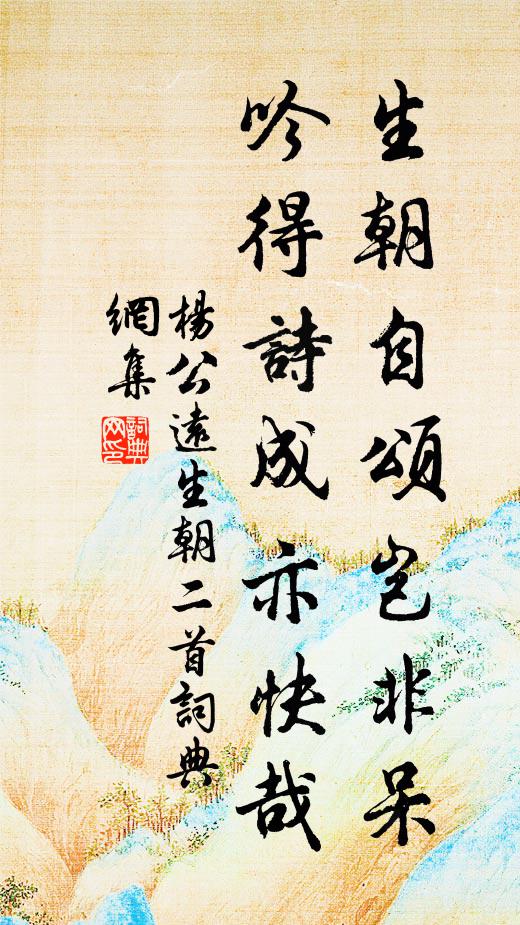 生朝自頌豈非呆
吟得詩成亦快哉
楊公遠生朝二首詞典
網集
詞典
网印